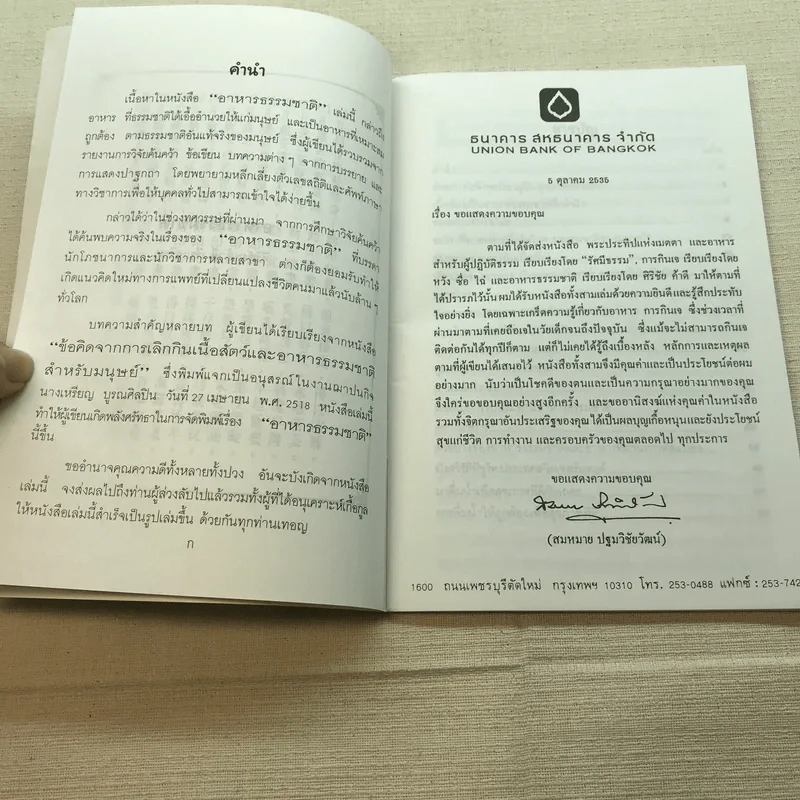 คำนำ
เนื้อหาในหนังสือ “อาหารธรรมชาติ” เล่มนี้ กล่าวถึง
อาหาร ที่ธรรมชาติได้เอื้ออำนวยให้แก่มนุษย์ และเป็นอาหารที่เหมาะสม
ถูกต้อง ตามธรรมชาติอันแท้จริงของมนุษย์ ซึ่งผู้เขียนได้รวบรวมจาก
รายงานการวิจัยค้นคว้า ข้อเขียน บทความต่างๆ จากการบรรยาย และ
การแสดงปาฐกถา โดยพยายามหลีกเลี่ยงตัวเลขสถิติและศัพท์ภาษา
ทางวิชาการเพื่อให้บุคคลทั่วไปสามารถเข้าใจได้ง่ายขึ้น
กล่าวได้ว่าในช่วงทศวรรษที่ผ่านมา จากการศึกษาวิจัยค้นคว้า
ได้ค้นพบความจริงในเรื่องของ “อาหารธรรมชาติ” ที่บรรดา
นักโภชนาการและนักวิชาการหลายสาขา ต่างก็ต้องยอมรับทำให้
เกิดแนวคิดใหม่ทางการแพทย์ที่เปลี่ยนแปลงชีวิตคนมาแล้วนับล้าน ๆ
ทั่วโลก
บทความสำคัญหลายบท ผู้เขียนได้เรียบเรียงจากหนังสือ
“ข้อคิดจากการเลิกกินเนื้อสัตว์และอาหารธรรมชาติ
สำหรับมนุษย์” ซึ่งพิมพ์แจกเป็นอนุสรณ์ในงานฌาปนกิจ
นางเหรียญ บูรณศิลปิน วันที่ 27 เมษายน พ.ศ. 2518 หนังสือเล่มนี้
ทำให้ผู้เขียนเกิดพลังศรัทธาในการจัดพิมพ์เรื่อง “อาหารธรรมชาติ”
นี้ขึ้น
ขออำนาจคุณความดีทั้งหลายทั้งปวง อันจะบังเกิดจากหนังสือ
เล่มนี้ จงส่งผลไปถึงท่านผู้ล่วงลับไปแล้วรวมทั้งผู้ที่ได้อนุเคราะห์เกื้อกูล
ให้หนังสือเล่มนี้สำเร็จเป็นรูปเล่มขึ้น ด้วยกันทุกท่านเทอญ
ก
ธนาคาร สหธนาคาร จำกัด
UNION BANK OF BANGKOK
5 ตุลาคม 2535
เรื่อง ขอแสดงความขอบคุณ
ตามที่ได้จัดส่งหนังสือ พระประทีปแห่งเมตตา และอาหาร
สำหรับผู้ปฏิบัติธรรม เรียบเรียงโดย “รัศมีธรรม”, การกินเจ เรียบเรียงโดย
หวัง ซื่อ ไฉ่ และอาหารธรรมชาติ เรียบเรียงโดย ศิริชัย ค้าดี มาให้ตามที่
ได้ปรารภไว้นั้น ผมได้รับหนังสือทั้งสามเล่มด้วยความยินดีและรู้สึกประทับ
ใจอย่างยิ่ง โดยเฉพาะเกร็ดความรู้เกี่ยวกับอาหาร การกินเจ ซึ่งช่วงเวลาที่
ผ่านมาตามที่เคยถือเจในวัยเด็กจนถึงปัจจุบัน ซึ่งแม้จะไม่สามารถกินเจ
ติดต่อกันได้ทุกปีก็ตาม แต่ก็ไม่เคยได้รู้ถึงเบื้องหลัง หลักการและเหตุผล
ตามที่ผู้เขียนได้เสนอไว้ หนังสือทั้งสามจึงมีคุณค่าและเป็นประโยชน์ต่อผม
อย่างมาก นับว่าเป็นโชคดีของตนและเป็นความกรุณาอย่างมากของคุณ
จึงใคร่ขอขอบคุณอย่างสูงอีกครั้ง และขออานิสงส์แห่งคุณค่าในหนังสือ
รวมทั้งจิตกรุณาอันประเสริฐของคุณ ได้เป็นผลบุญเกื้อหนุนและยังประโยชน์
สุขแก่ชีวิต การทำงาน และครอบครัวของคุณตลอดไป ทุกประการ
ขอแสดงความขอบคุณ
(สมหมาย ปฐมวิชัยวัฒน์)
1600 ถนนเพชรบุรีตัดใหม่ กรุงเทพฯ 10310 โทร. 253-0488 แฟกซ์ : 253-742